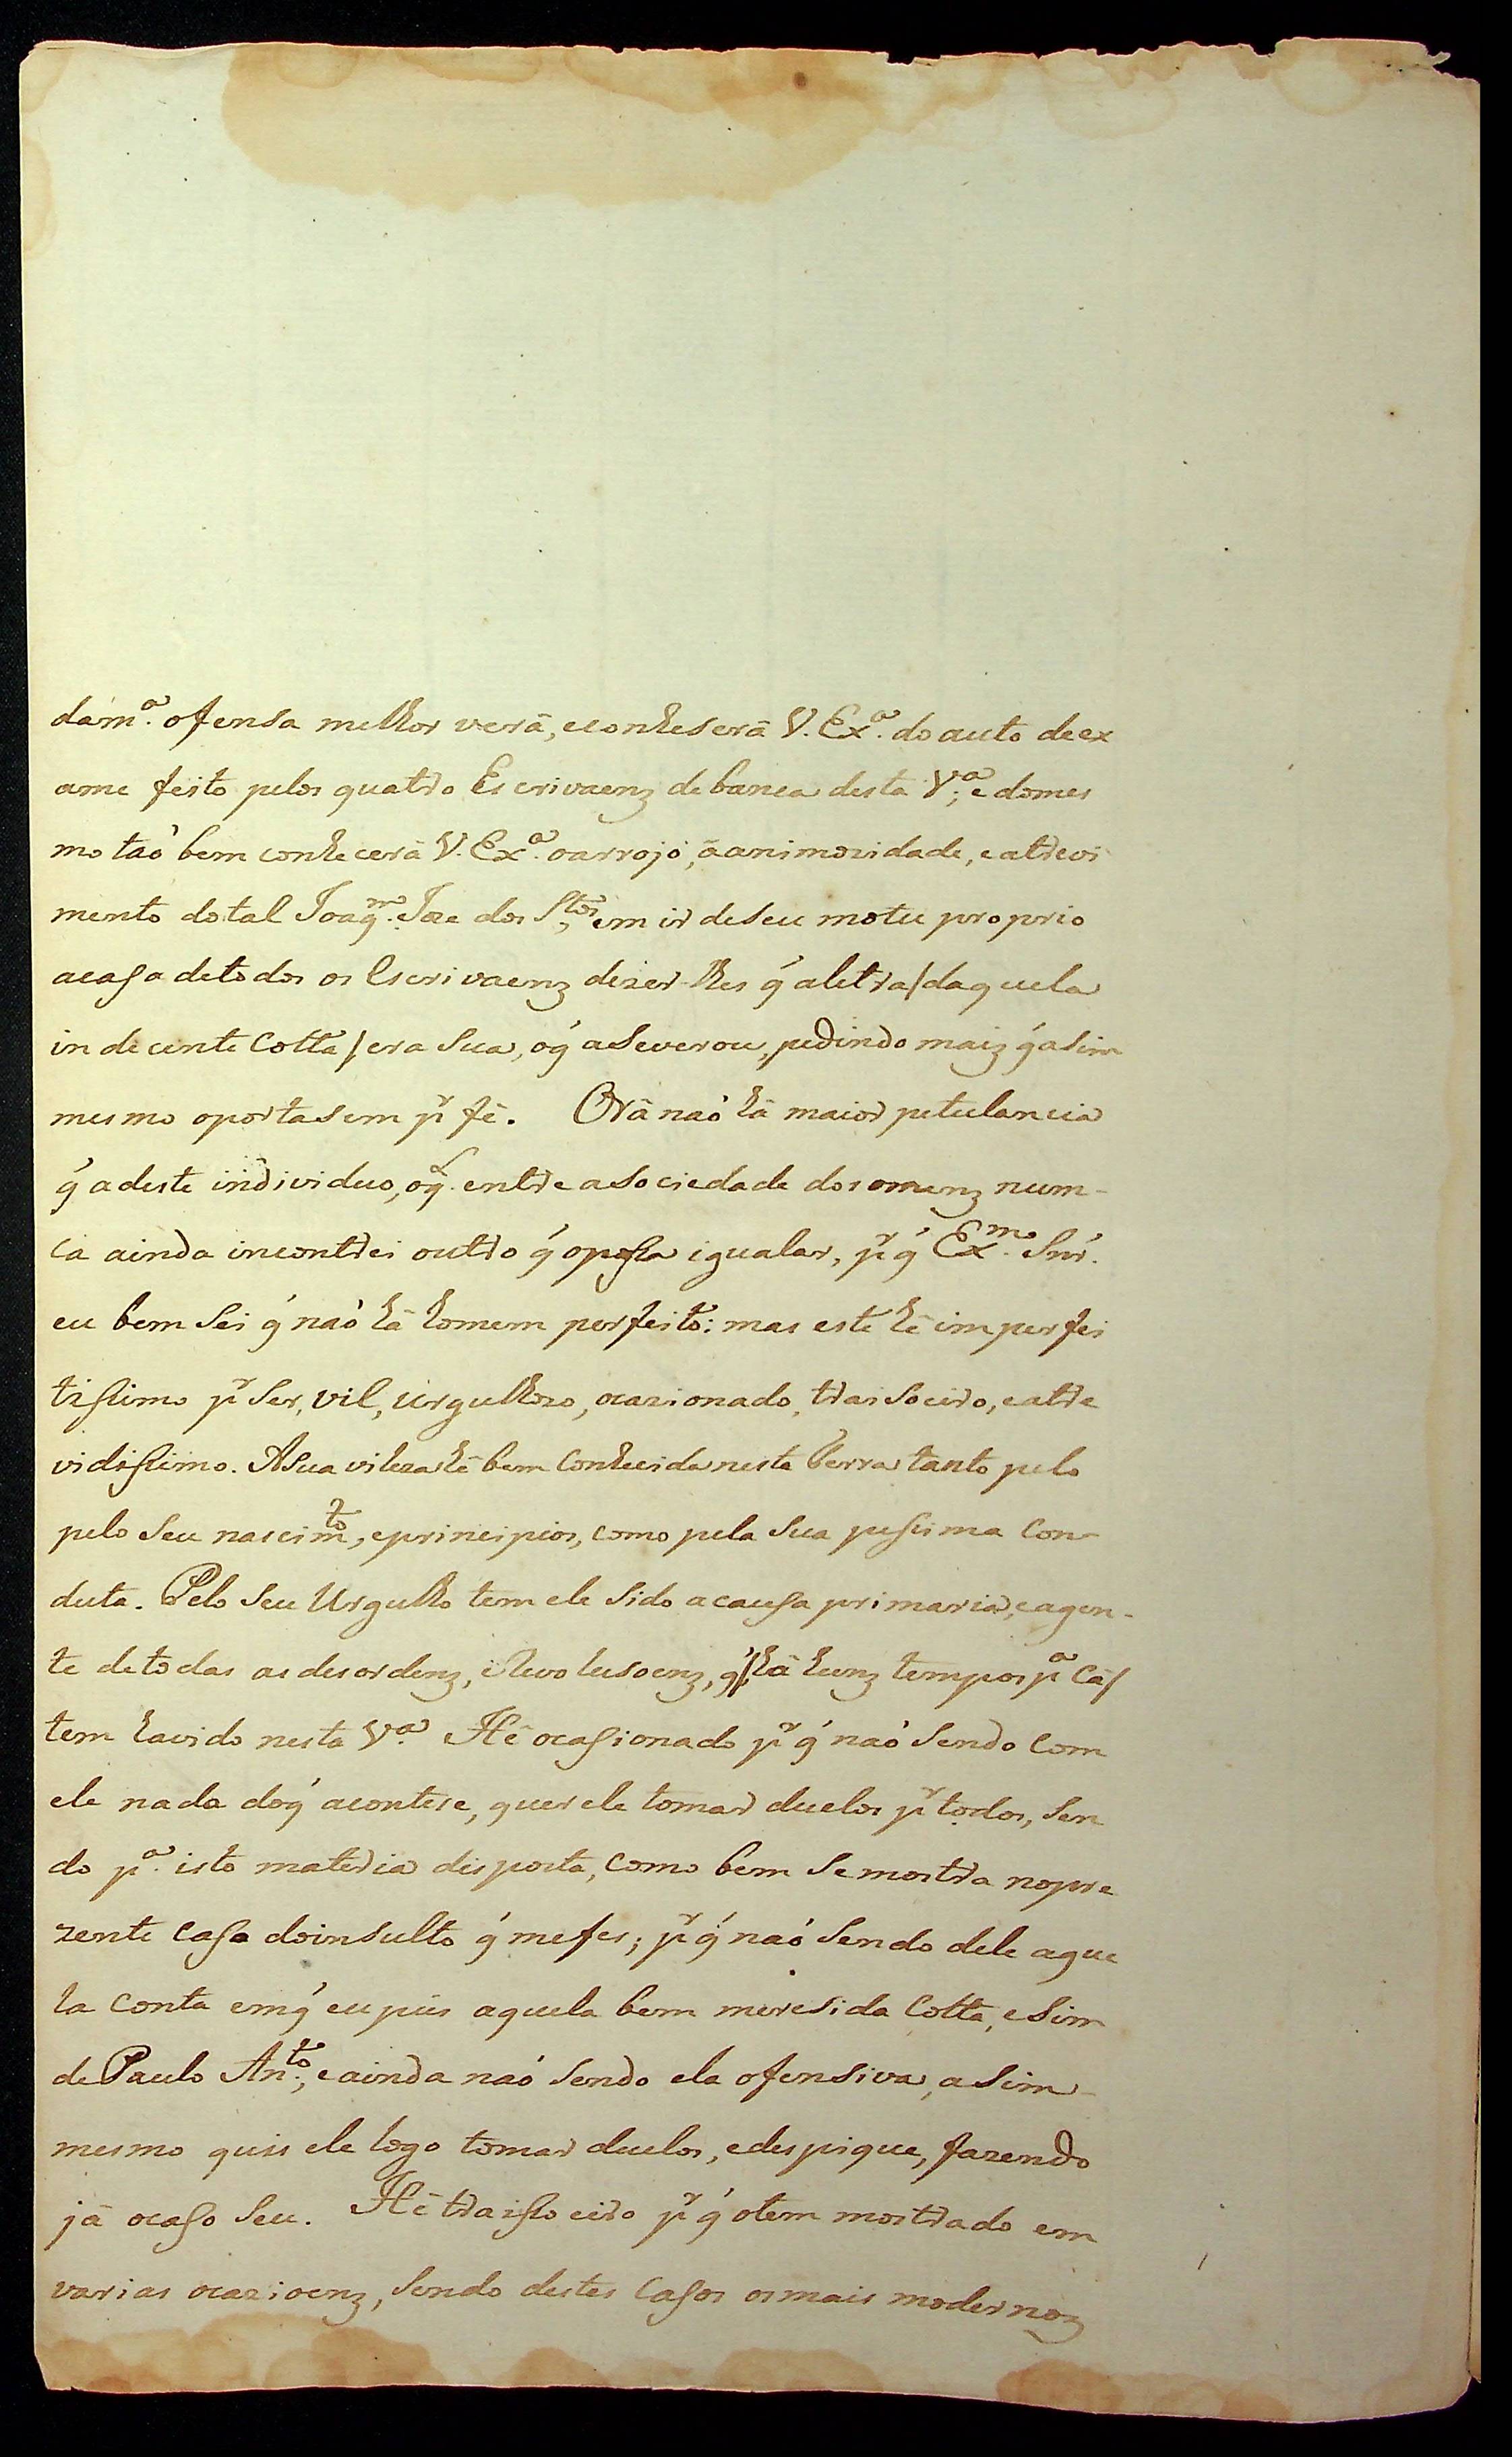 dam.ª ofensa melhor verâ, econheserâ V. Ex.ª do auto deex
ame feito pelos quatro Escrivaenz debanca desta V.ª; e domes
mo taó bem conhecerâ V. Ex.ª oarrojo, âanimozidade, eatrevi
mento dotal Joaq.m Joze dos S.tos, em ir deseu motu proprio
acasa detodos os Escrivaenz dizer-lhes q́ aletra/daquela
indecente Cotta/era sua, oq́ aseverou, pedindo maiz q́asim
mesmo oportasem p.r fê. Orâ naó hâ maior petulancia
q́ adeste individuo, oq.l entre asociedade dos omenz num-
ca ainda incontrei outro q́ opossa igualar, p.r q́ Ex.mo Snr̃.
eu bem sei q́ naó hâ homem perfeito: mas este hê imperfei
tissimo p.r ser, vil, urgulhozo, ocazionado, traisoeiro, eatre
vidissimo. Asua vileza hê bem Conhecida nesta terra tanto pelo
pelo seu nascim.to, eprincipios, como pela sua pessima Con-
duta. Pelo seu Urgulho tem ele sido acausa primaria, eagen-
te detodas asdesordenz, e Revolusoenz, q́/hâ hunz tempos p.ª Câ/
tem havido nesta V.ª Hê ocasionado p.r q́ naó sendo Com
ele nada doq́ acontese, quer ele tomar duelos p.r todos, sen
do p.ª isto materia disposta, Como bem semostra nopre
zente Caso doinsulto q́ mefes; p.r q́ naó sendo dele aque
la Conta emq́ eupus aquela bem meresida Cotta, esim
dePaulo An.to; eainda naó sendo ela ofensiva, asim
mesmo quis ele logo tomar duelos, edespique, fazendo
jâ ocaso seu. Hê traissoeiro p.r q́ otem mostrado em
varias ocazioenz, sendo destes Casos osmais modernoz